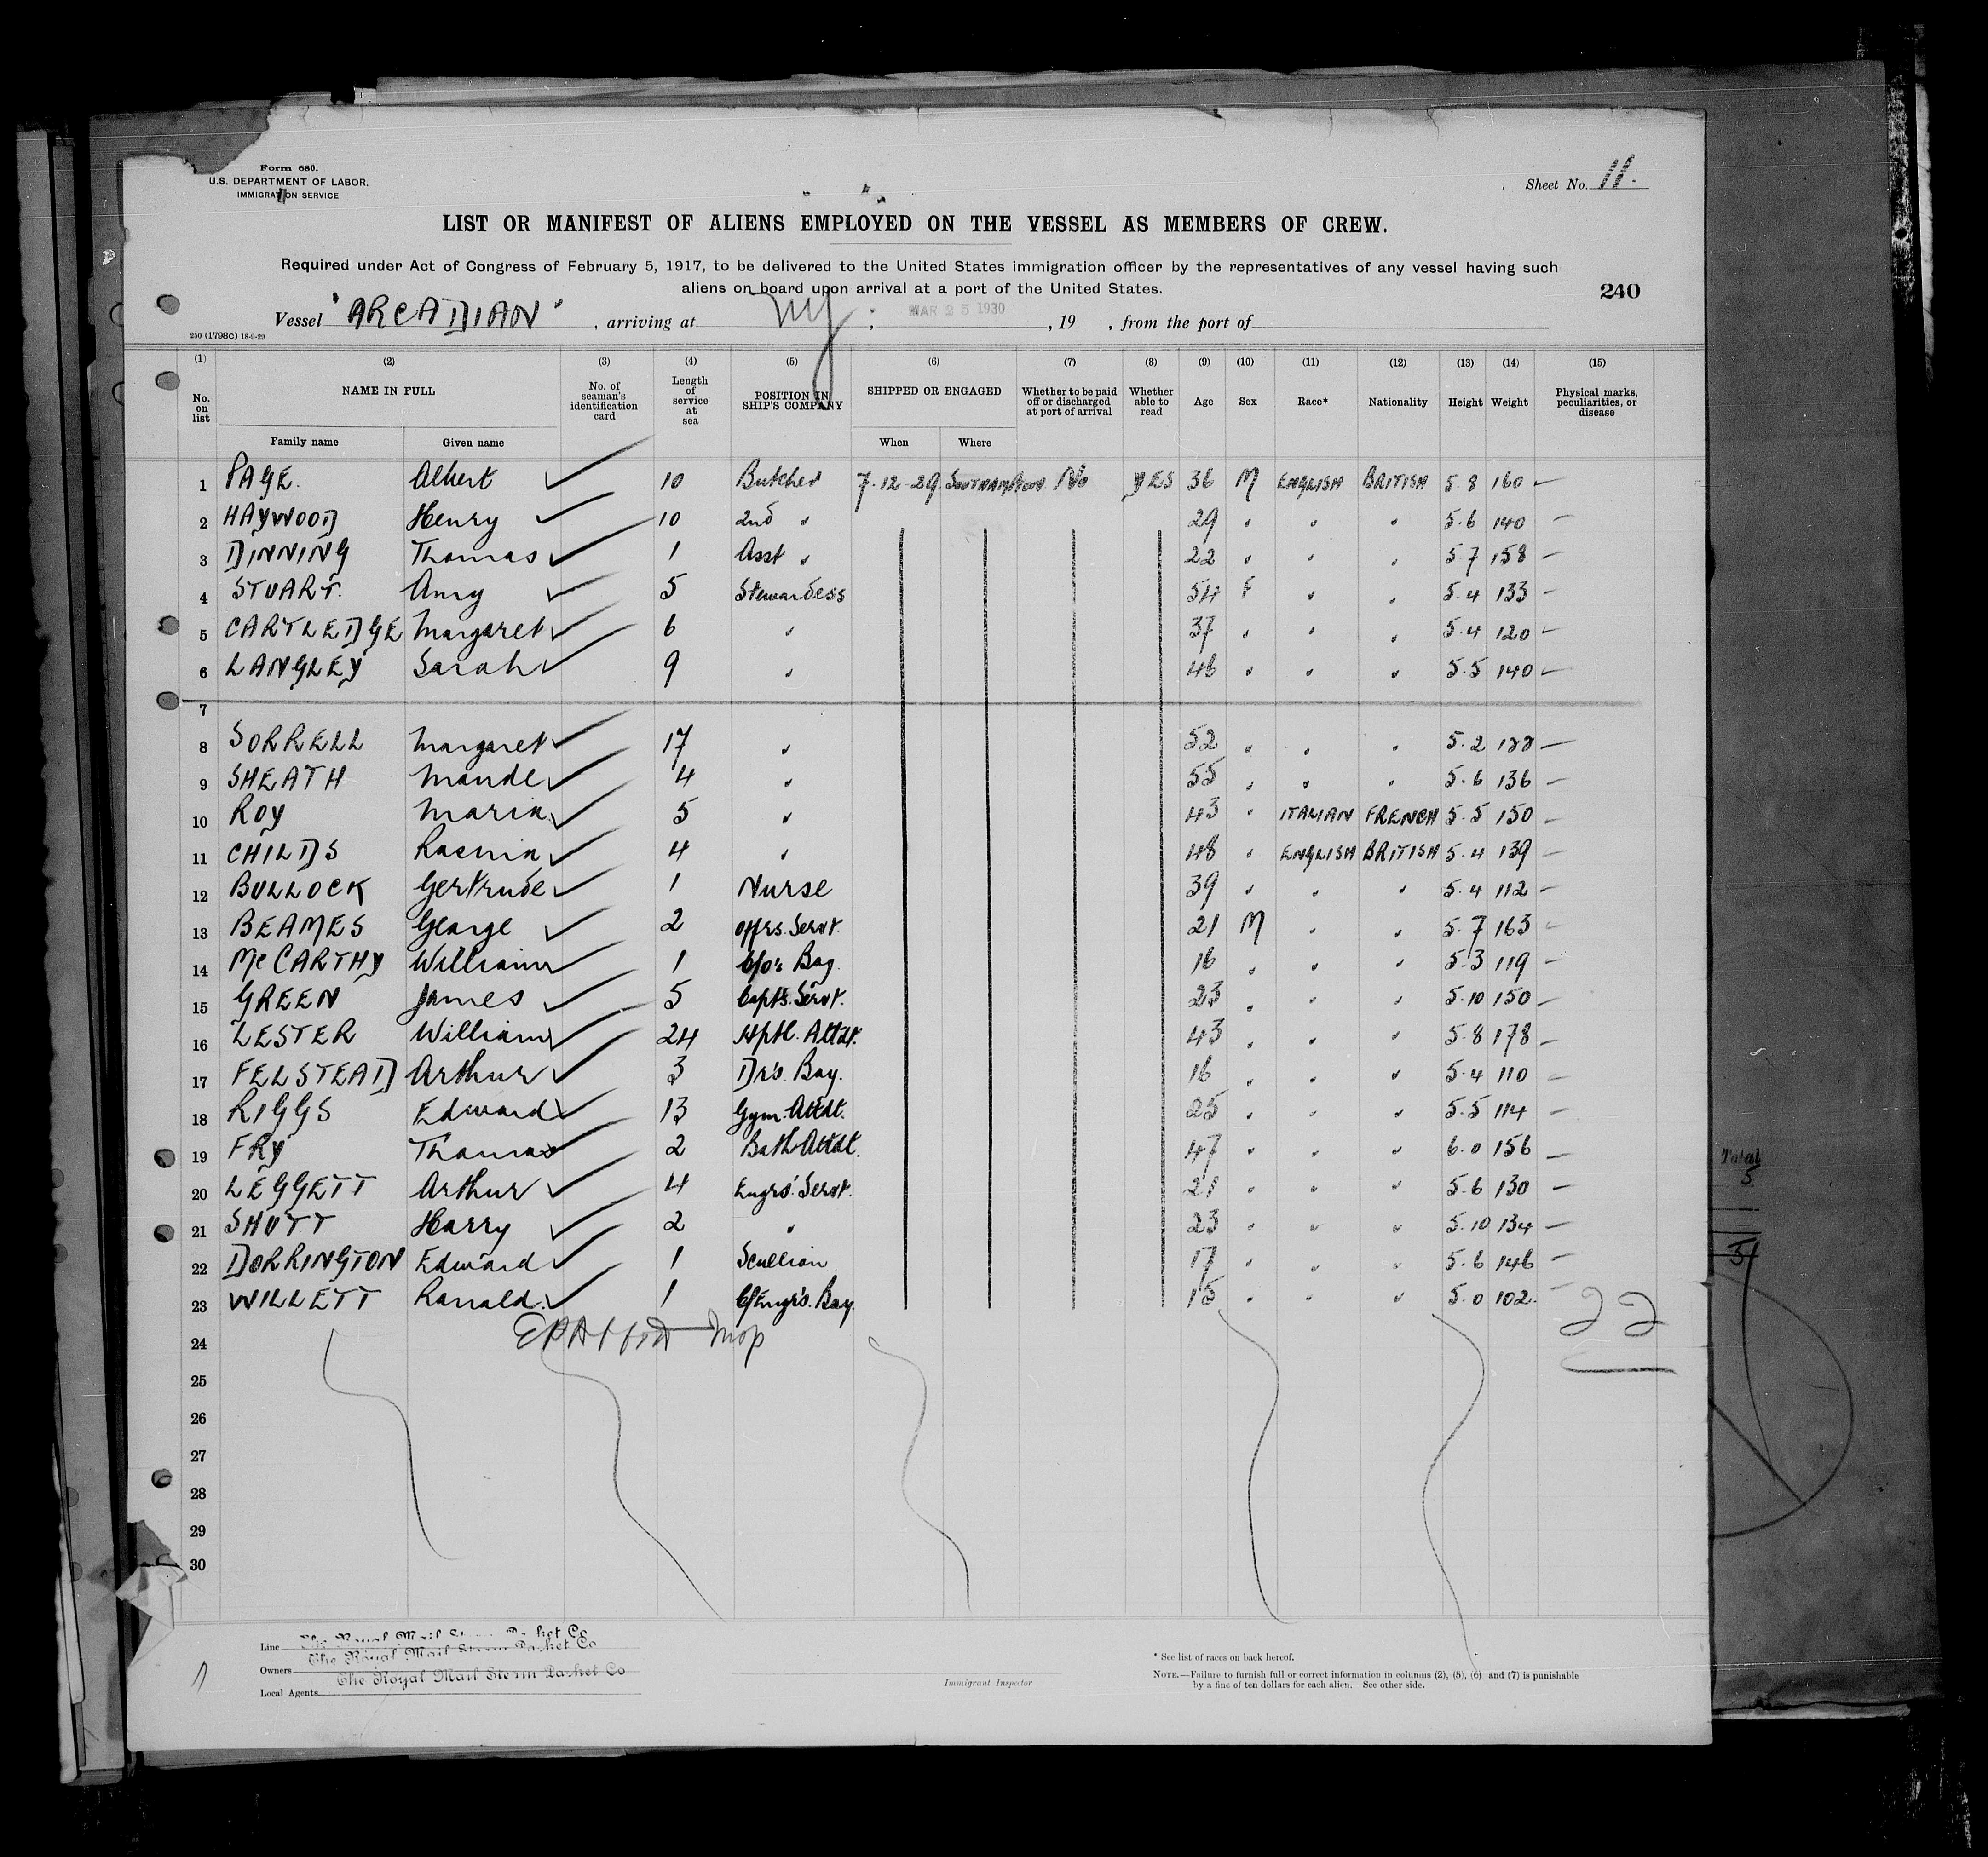 Form 680.
U.S. DEPARTMENT OF LABOR.
IMMIGRATION SERVICE
Sheet No. 11.
LIST OR MANIFEST OF ALIENS EMPLOYED ON THE VESSEL AS MEMBERS OF CREW.
Required under Act of Congress of February 5, 1917, to be delivered to the United States immigration officer by the representatives of any vessel having such
aliens on board upon arrival at a port of the United States.
240
Vessel "ARCADIAN", arriving at NY, MAR 25 1930, 19 , from the port of
250 (1798c) 18-9-29
(1) (2) (3) (4) (5) (6) (7) (8) (9) (10) (11) (12) (13) (14) (15)
No. on list NAME IN FULL No. of seaman's identification card Length of service at sea POSITION IN SHIP'S COMPANY SHIPPED OR ENGAGED Whether to be paid off or discharged at port of arrival Whether able to read Age Sex Race* Nationality Height Weight Physical marks, peculiarities, or disease
Family name Given name When Where
1 PAGE. Albert 10 Butcher 7-12-29 SOUTHAMPTON No YES 36 M ENGLISH BRITISH 5.8 160 —
2 HAYWOOD Henry 10 2nd " 29 " " " 5.6 140 —
3 DINNING Thomas 1 Asst " 22 " " " 5.7 158 —
4 STUART. Amy 5 Stewardess 54 F " " 5.4 133 —
5 CARTLEDGE Margaret 6 " 37 " " " 5.4 120 —
6 LANGLEY Sarah 9 " 46 " " " 5.5 140 —
7
8 SORRELL Margaret 17 " 52 " " " 5.2 —
9 SHEATH Maude 4 " 55 " " " 5.6 136 —
10 ROY Maria 5 " 43 " ITALIAN FRENCH 5.5 150 —
11 CHILDS 4 " 48 " ENGLISH BRITISH 5.4 139 —
12 BULLOCK Gertrude 1 Nurse 39 " " " 5.4 112 —
13 BEAMES George 2 Offrs. Servt. 21 M " " 5.7 163 —
14 McCARTHY William 1 Boy. 16 " " " 5.3 119 —
15 GREEN James 5 Capt's. Servt. 23 " " " 5.10 150 —
16 LESTER William 24 Hptl. Attdt. 43 " " " 5.8 178 —
17 FELSTEAD Arthur 3 Dr's. Boy. 16 " " " 5.4 110 —
18 RIGGS Edward 13 Gym. Attdt. 25 " " " 5.5 114 —
19 FRY Thomas 2 Bath Attdt. 47 " " " 6.0 156 —
20 LEGGETT Arthur 4 Engrs'. Servt. 21 " " " 5.6 130 —
21 SHUTT Harry 2 " 23 " " " 5.10 134 —
22 DORRINGTON Edward 1 Scullion 17 " " " 5.6 146 —
23 WILLETT Ronald. 1 C/Engr's. Boy. 15 " " " 5.0 102. —
22
24
25
26
27
28
29
30
Line The Royal Mail Steam Packet Co
Owners The Royal Mail Steam Packet Co
Local Agents The Royal Mail Steam Packet Co
Immigrant Inspector
* See list of races on back hereof.
NOTE.—Failure to furnish full or correct information in columns (2), (5), (6) and (7) is punishable
by a fine of ten dollars for each alien. See other side.
Total
5